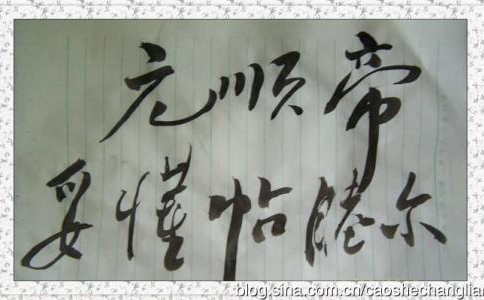 元顺帝
妥懽帖睦尔
blog.sina.com.cn/caoshechanglian